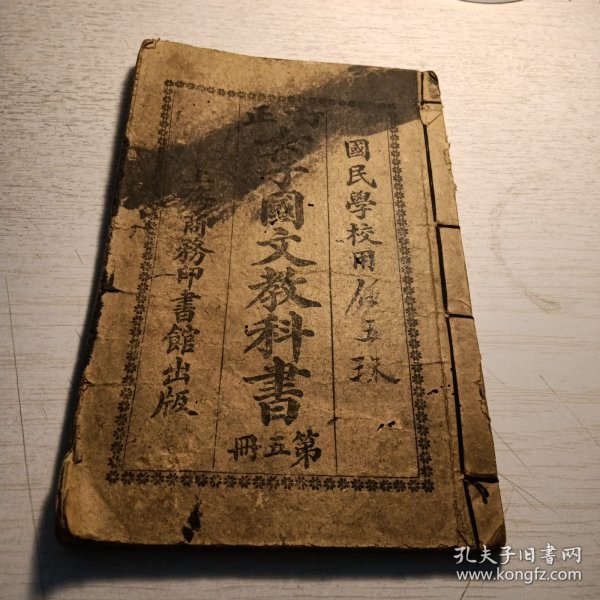 國民學校用
訂正
女子國文教科書
第五冊
上海商務印書館出版
孔夫子旧书网
www.kongfz.com